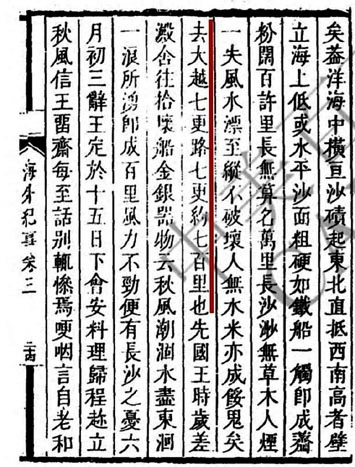 矣蓋洋海中橫亘沙磧起東北直抵西南高者壁
立海上低或水平沙面粗硬如鐵船一觸即成齏
粉闊百許里長無算名萬里長沙渺無草木人煙
一失風水漂至縱不破壞人無水米亦成餒鬼矣
去大越七更路七更約七百里也先國王時歲差
澱舍往拾壞船金銀器物云秋風潮涸水盡東洄
一浪所湧即成百里風力不勁便有長沙之憂六
月初三辭王定於十五日下會安料理歸程趂立
秋風信王留齋每至話別輒慘焉哽咽言自老和
海外紀事卷三